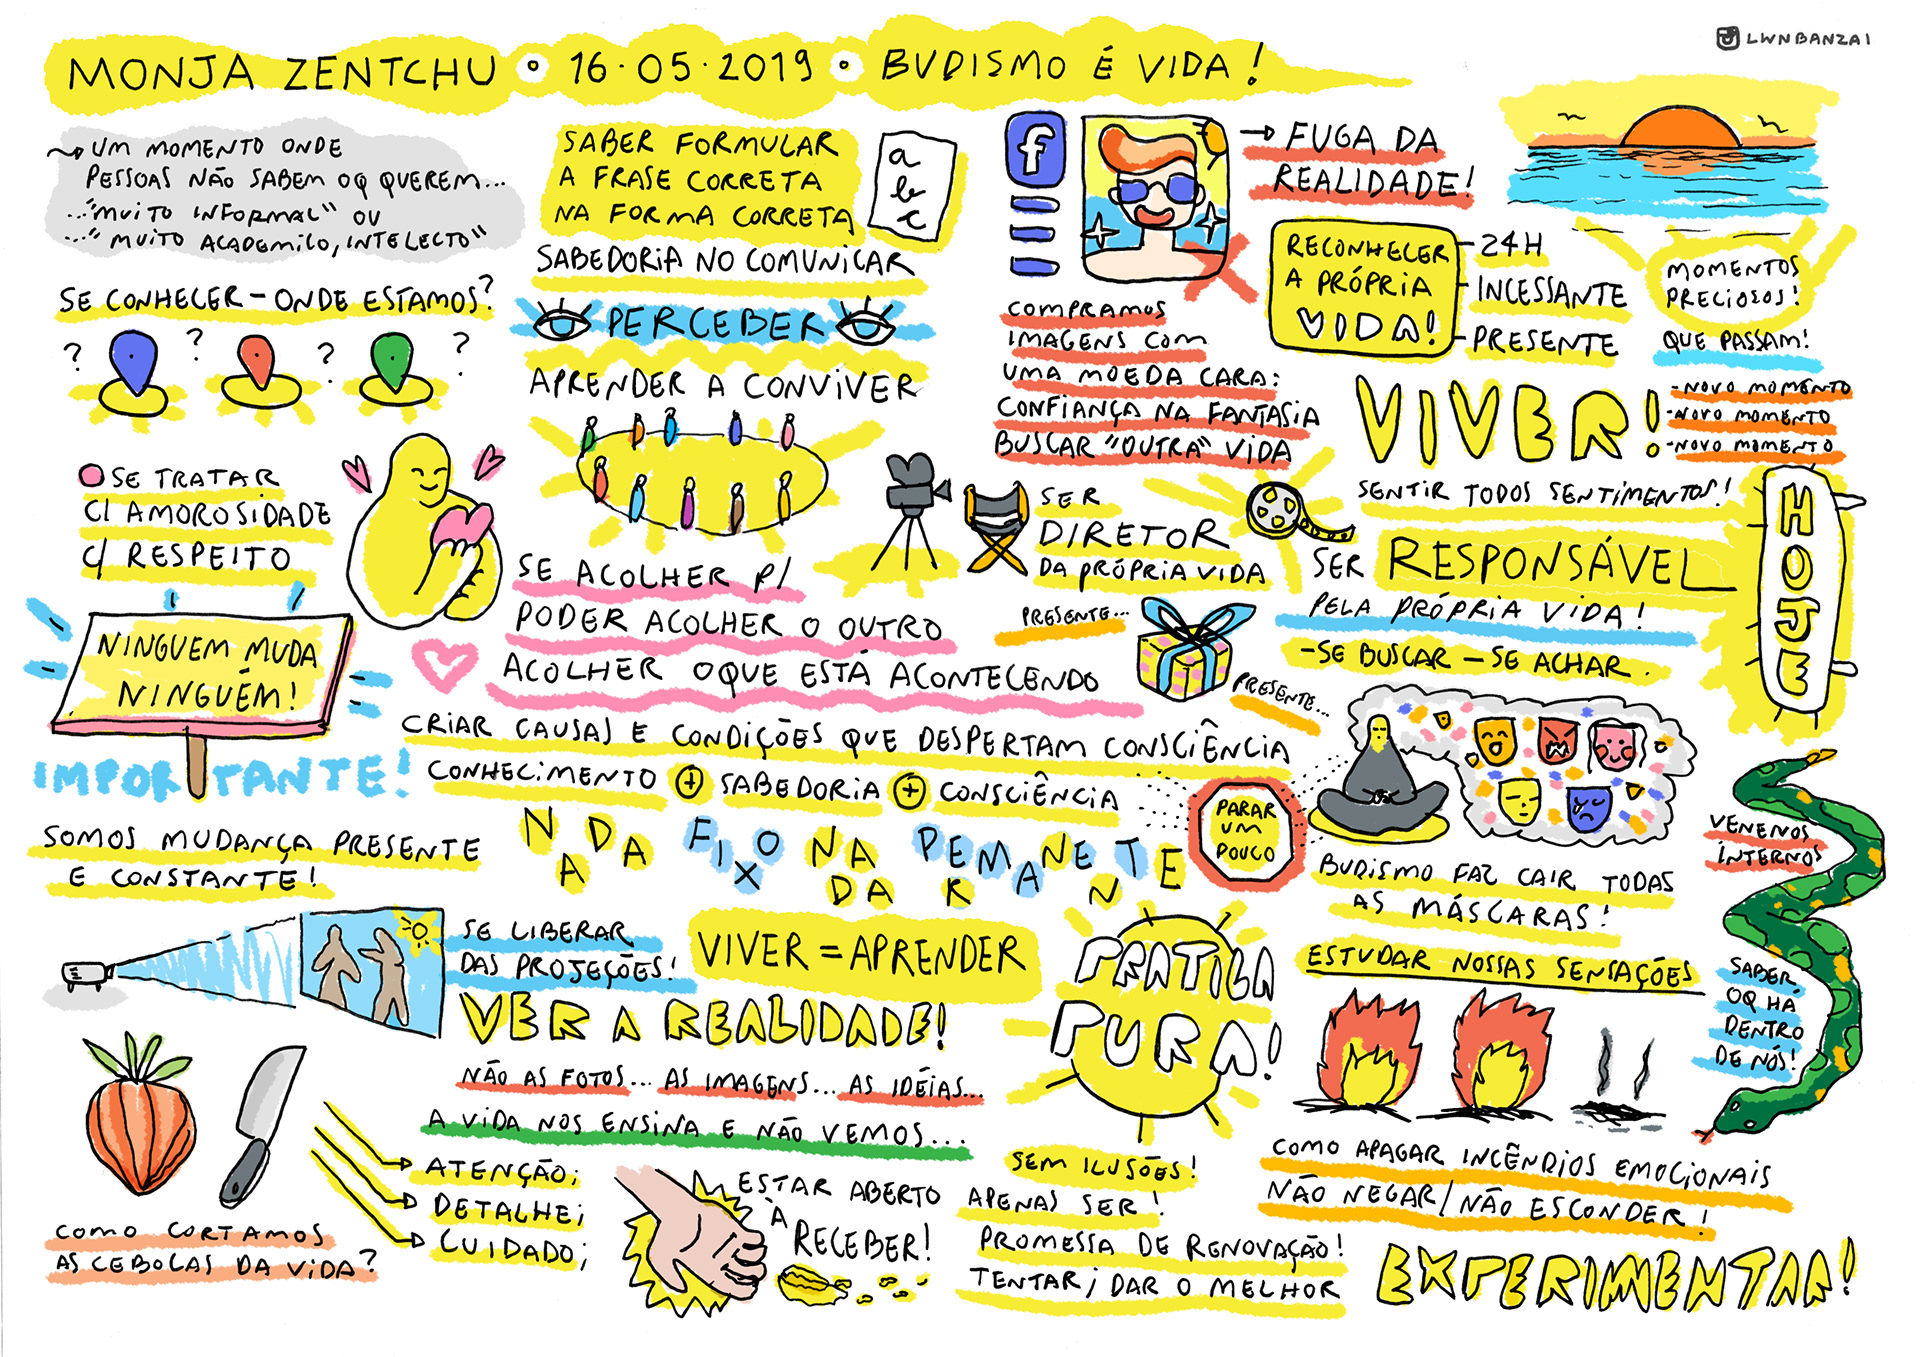 MONJA ZENTCHU • 16•05•2019 • BUDISMO É VIDA!
LWNBANZAI
UM MOMENTO ONDE
PESSOAS NÃO SABEM OQ QUEREM...
..."MUITO INFORMAL" OU
..."MUITO ACADEMICO, INTELECTO"
SE CONHECER - ONDE ESTAMOS?
? ? ? ?
SE TRATAR
C/ AMOROSIDADE
C/ RESPEITO
NINGUEM MUDA
NINGUÉM!
IMPORTANTE!
SOMOS MUDANÇA PRESENTE
E CONSTANTE!
SABER FORMULAR
A FRASE CORRETA
NA FORMA CORRETA
a
b
c
SABEDORIA NO COMUNICAR
PERCEBER
APRENDER A CONVIVER
SE ACOLHER P/
PODER ACOLHER O OUTRO
ACOLHER OQUE ESTÁ ACONTECENDO
CRIAR CAUSAS E CONDIÇÕES QUE DESPERTAM CONSCIÊNCIA
CONHECIMENTO + SABEDORIA + CONSCIÊNCIA
NADA FIXO NADA PERMANENTE
f
FUGA DA
REALIDADE!
COMPRAMOS
IMAGENS COM
UMA MOEDA CARA:
CONFIANÇA NA FANTASIA
BUSCAR "OUTRA" VIDA
RECONHECER
A PRÓPRIA
VIDA!
24H
INCESSANTE
PRESENTE
MOMENTOS
PRECIOSOS!
QUE PASSAM!
- NOVO MOMENTO
- NOVO MOMENTO
- NOVO MOMENTO
VIVER!
SENTIR TODOS SENTIMENTOS!
HOJE
SER
DIRETOR
DA PRÓPRIA VIDA
SER RESPONSÁVEL
PELA PRÓPRIA VIDA!
- SE BUSCAR - SE ACHAR.
PRESENTE...
PRESENTE...
PARAR
UM
POUCO
BUDISMO FAZ CAIR TODAS
AS MÁSCARAS!
VENENOS
INTERNOS
SABER,
OQ HA
DENTRO
DE NÓS!
ESTUDAR NOSSAS SENSAÇÕES
COMO APAGAR INCÊNDIOS EMOCIONAIS
NÃO NEGAR/NÃO ESCONDER!
EXPERIMENTAR!
SE LIBERAR
DAS PROJEÇÕES!
VIVER = APRENDER
VER A REALIDADE!
NÃO AS FOTOS... AS IMAGENS... AS IDÉIAS...
A VIDA NOS ENSINA E NÃO VEMOS...
PRATICA
PURA!
SEM ILUSÕES!
APENAS SER!
PROMESSA DE RENOVAÇÃO!
TENTAR; DAR O MELHOR
COMO CORTAMOS
AS CEBOLAS DA VIDA?
ATENÇÃO;
DETALHE;
CUIDADO;
ESTAR ABERTO
À
RECEBER!